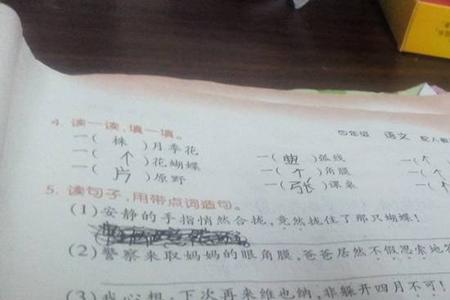 4. 读一读,填一填。
四年级 语文 配人教
一( 株 )月季花
一( 个 )花蝴蝶 一( )弧线 一( 个
一( 片 )原野 一( 个 )角膜 一( 个
一( 张 )课桌
5. 读句子,用带点词造句。
(1)安静的手指悄然合拢,竟然拢住了那只蝴蝶!
(2)警察来取妈妈的眼角膜,爸爸居然不假思索地答
(3)我心想,下次再来维也纳,非躲开四月不可!